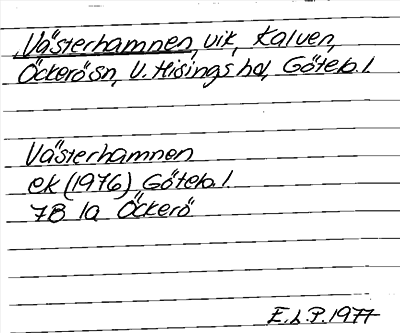 Västerhamnen, vik, Kalven,
Öckerö sn, V. Hisings hd, Göteb. l.
Västerhamnen
ek (1976) Göteb. l.
7B 1a Öckerö
E.L.P. 1977